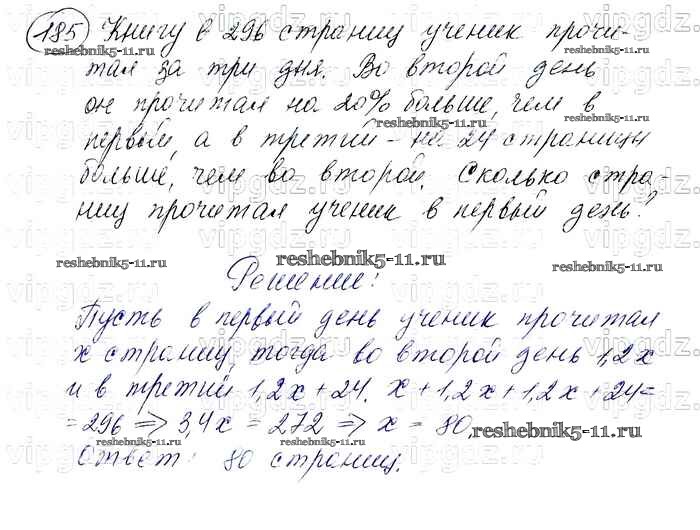 185 Книгу в 296 страниц ученик прочи-
тал за три дня. Во второй день
он прочитал на 20% больше, чем в
первый, а в третий - на 24 страницы
больше, чем во второй. Сколько стра-
ниц прочитал ученик в первый день?
Решение:
Пусть в первый день ученик прочитал
x страниц, тогда во второй день 1,2x
и в третий 1,2x + 24. x + 1,2x + 1,2x + 24 =
= 296 => 3,4x = 272 => x = 80.
Ответ: 80 страниц.
reshebnik5-11.ru
reshebnik5-11.ru
reshebnik5-11.ru
reshebnik5-11.ru
reshebnik5-11.ru
reshebnik5-11.ru
reshebnik5-11.ru
reshebnik5-11.ru
reshebnik5-11.ru
reshebnik5-11.ru
vipgdz.com